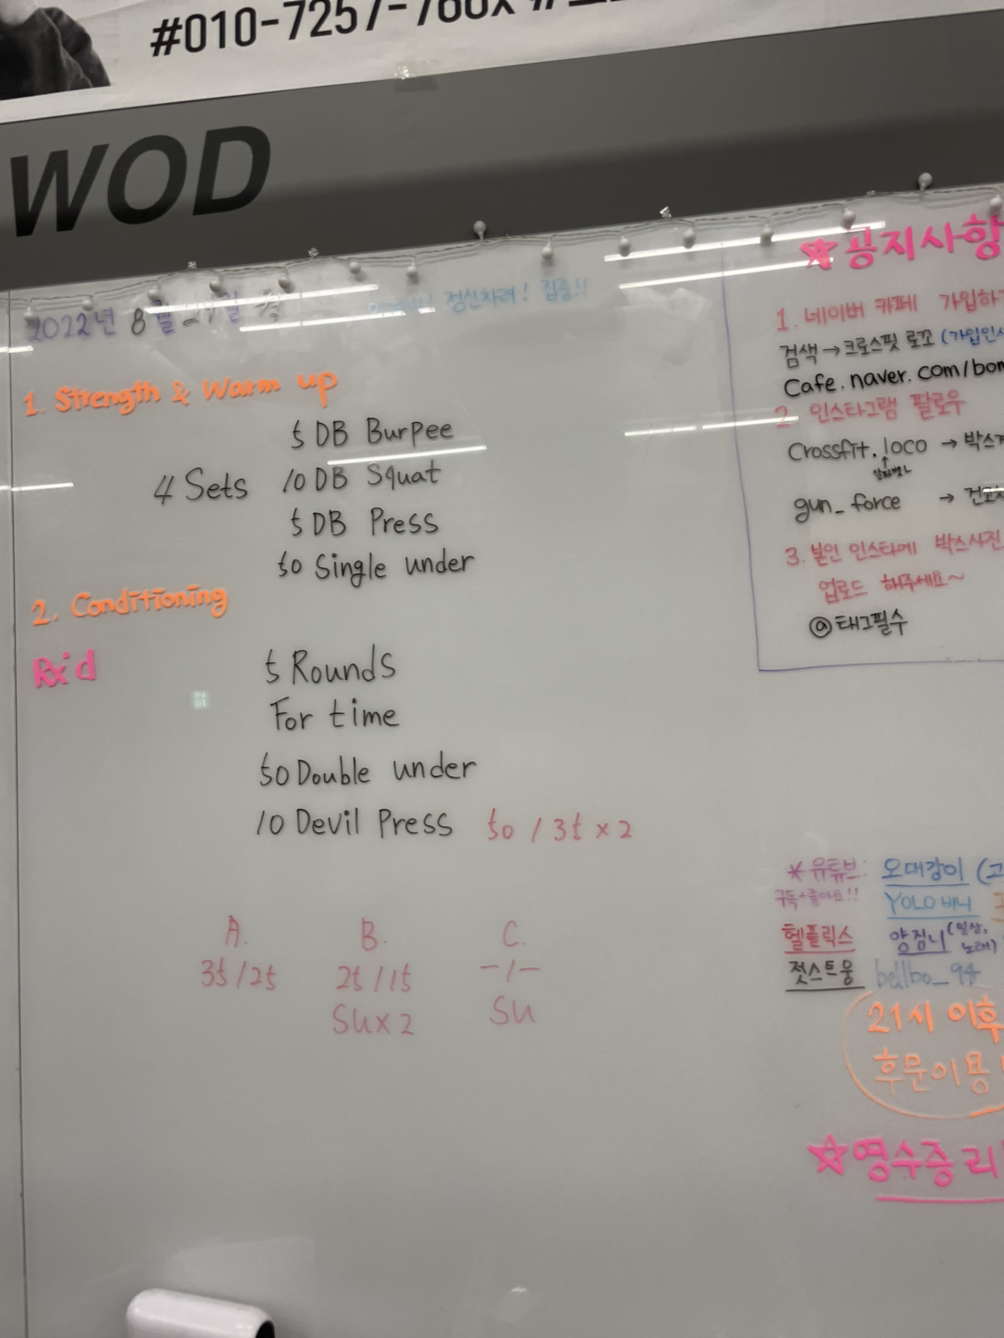 #010-7257-
WOD
2022년 8월
정신차려! 집중!!
1. Strength & Warm up
5 DB Burpee
4 Sets 10 DB Squat
5 DB Press
50 Single under
2. Conditioning
Rx'd 5 Rounds
For time
50 Double under
10 Devil Press 50 / 35 x 2
A. B. C.
35/25 25/15 -/-
SU x 2 SU
☆공지사항
1. 네이버 카페 가입하
검색→크로스핏 로꼬 (가입인
Cafe.naver.com/bom
2. 인스타그램 팔로우
Crossfit.loco → 박스
gun_force →
3. 본인 인스타에 박스사진
업로드 해주세요~
@태그필수
*유튜브: 오대강이 (
구독+좋아요!! YOLO 비니
헬플릭스 양점니 (일상, 노래)
젓스트웅 bellbo_94
21시 이후
후문이용
☆영수증 리